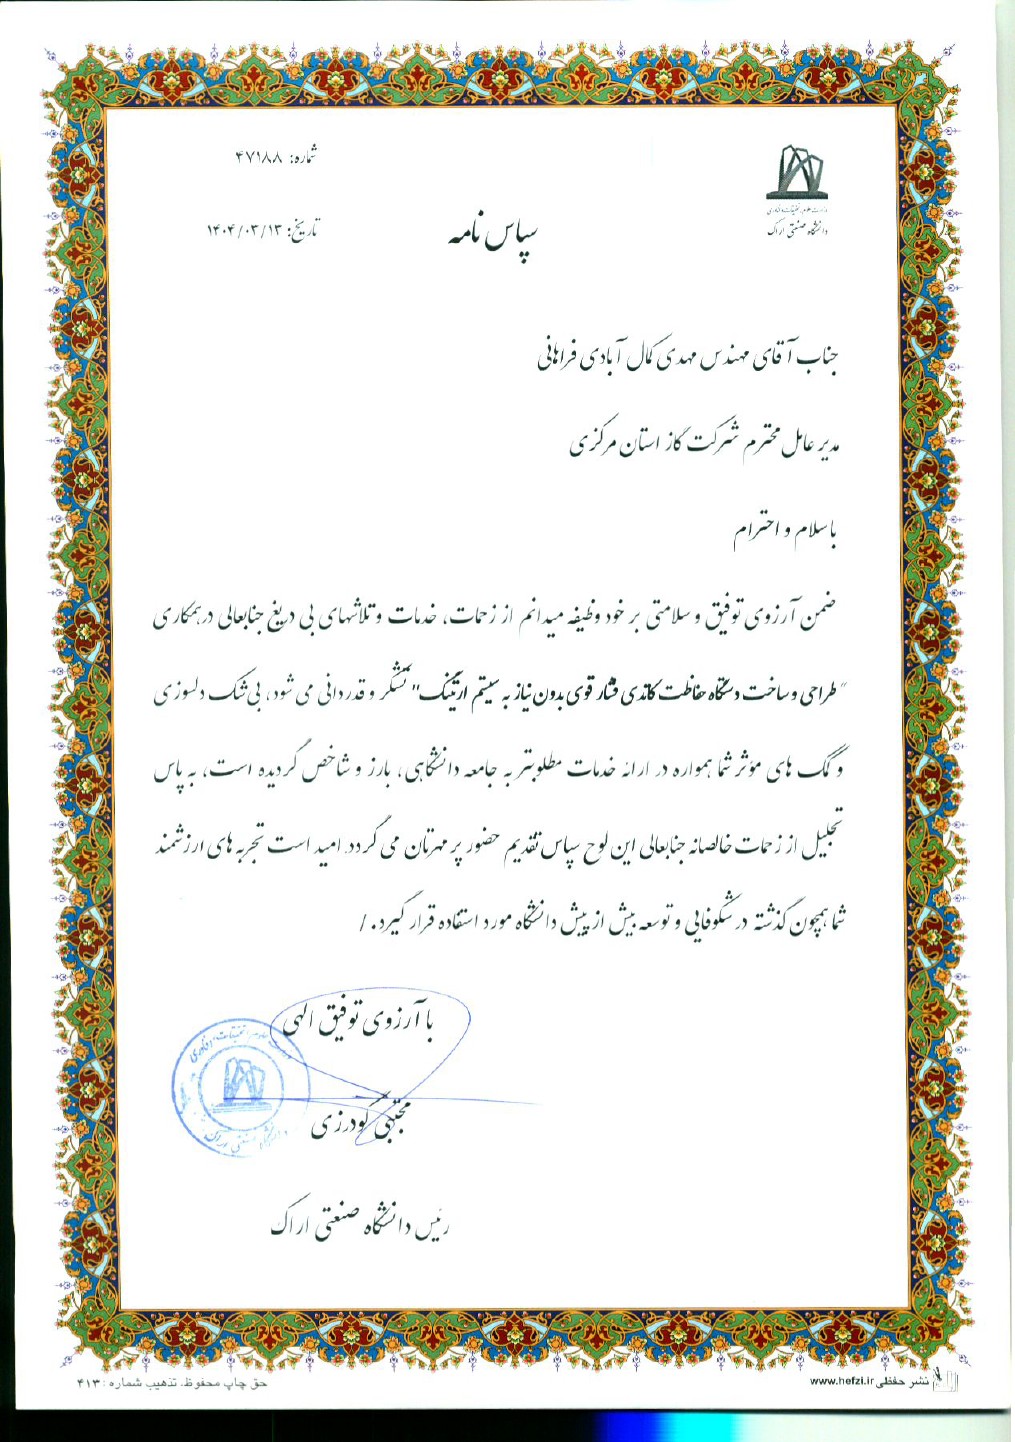 شماره: ۴۷۱۸۸
وزارت علوم، تحقیقات و فناوری
دانشگاه صنعتی اراک
تاریخ: ۱۴۰۴/۰۳/۱۳
سپاس نامه
جناب آقای مهندس مهدی کمال آبادی فراهانی
مدیر عامل محترم شرکت گاز استان مرکزی
باسلام و احترام
ضمن آرزوی توفیق و سلامتی بر خود وظیفه میدانم از زحمات، خدمات و تلاشهای بی دریغ جنابعالی درهمکاری
"طراحی و ساخت دستگاه حفاظت کاتدی فشار قوی بدون نیاز به سیستم ارتینگ" تشکر و قدردانی می شود، بی شک دلسوزی
و کمک های مؤثر شما همواره در ارائه خدمات مطلوبتر به جامعه دانشگاهی، بارز و شاخص گردیده است، به پاس
تجلیل از زحمات خالصانه جنابعالی این لوح سپاس تقدیم حضور پر مهرتان می گردد. امید است تجربه های ارزشمند
شما همچون گذشته در شکوفایی و توسعه بیش از پیش دانشگاه مورد استفاده قرار گیرد. /
با آرزوی توفیق الهی
مجتبی گودرزی
رئیس دانشگاه صنعتی اراک
نشر حفظی www.hefzi.ir
حق چاپ محفوظ، تذهیب شماره: ۴۱۳